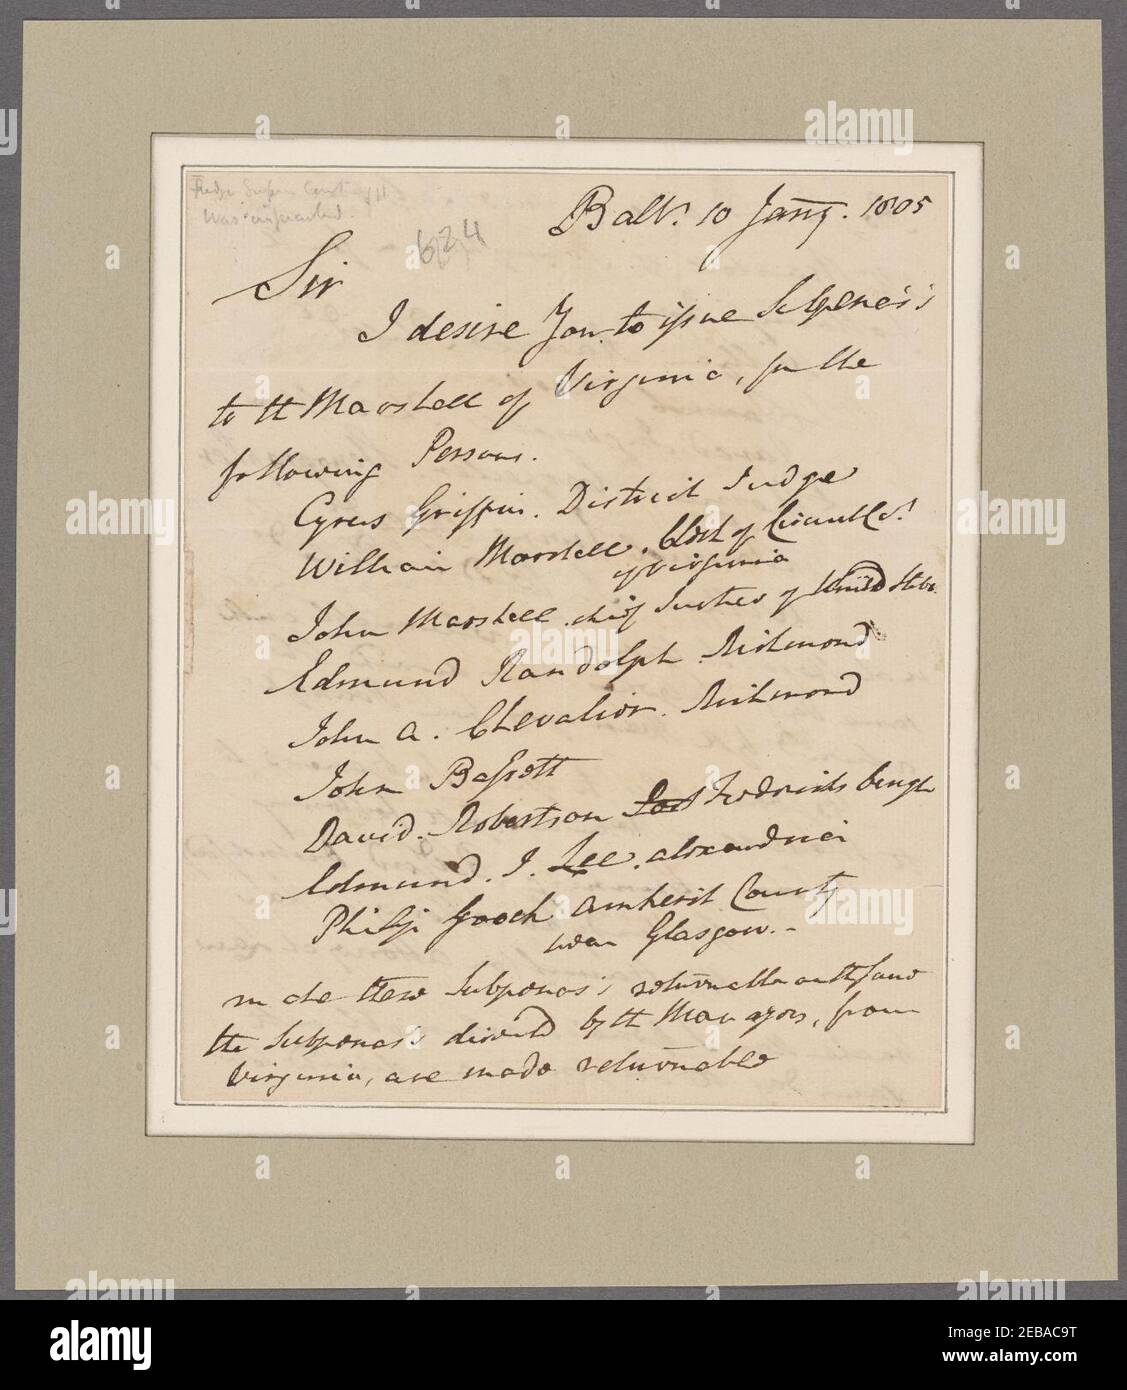 Balt. 10 Jany. 1805
624
Sir
I desire You to issue Subpenas's
to tt Marshall of Virginia, for the
following Persons.
Cyrus Griffin. District Judge
William Marshall. Clerk of Circuit Ct.
of Virginia
John Marshall. chief Justice of United States
Edmund Randolph. Richmond
John A. Chevalier. Richmond
John Bassett
David. Robertson Fredricksburgh
Edmund. J. Lee. alexandria
Philip Gooch Amherst County
near Glasgow. -
these Subpenas's returnable on the same
the Subpenas's directed by tt Managers, from
Virginia, are made returnable
alamy
Image ID: 2EBAC9T
www.alamy.com